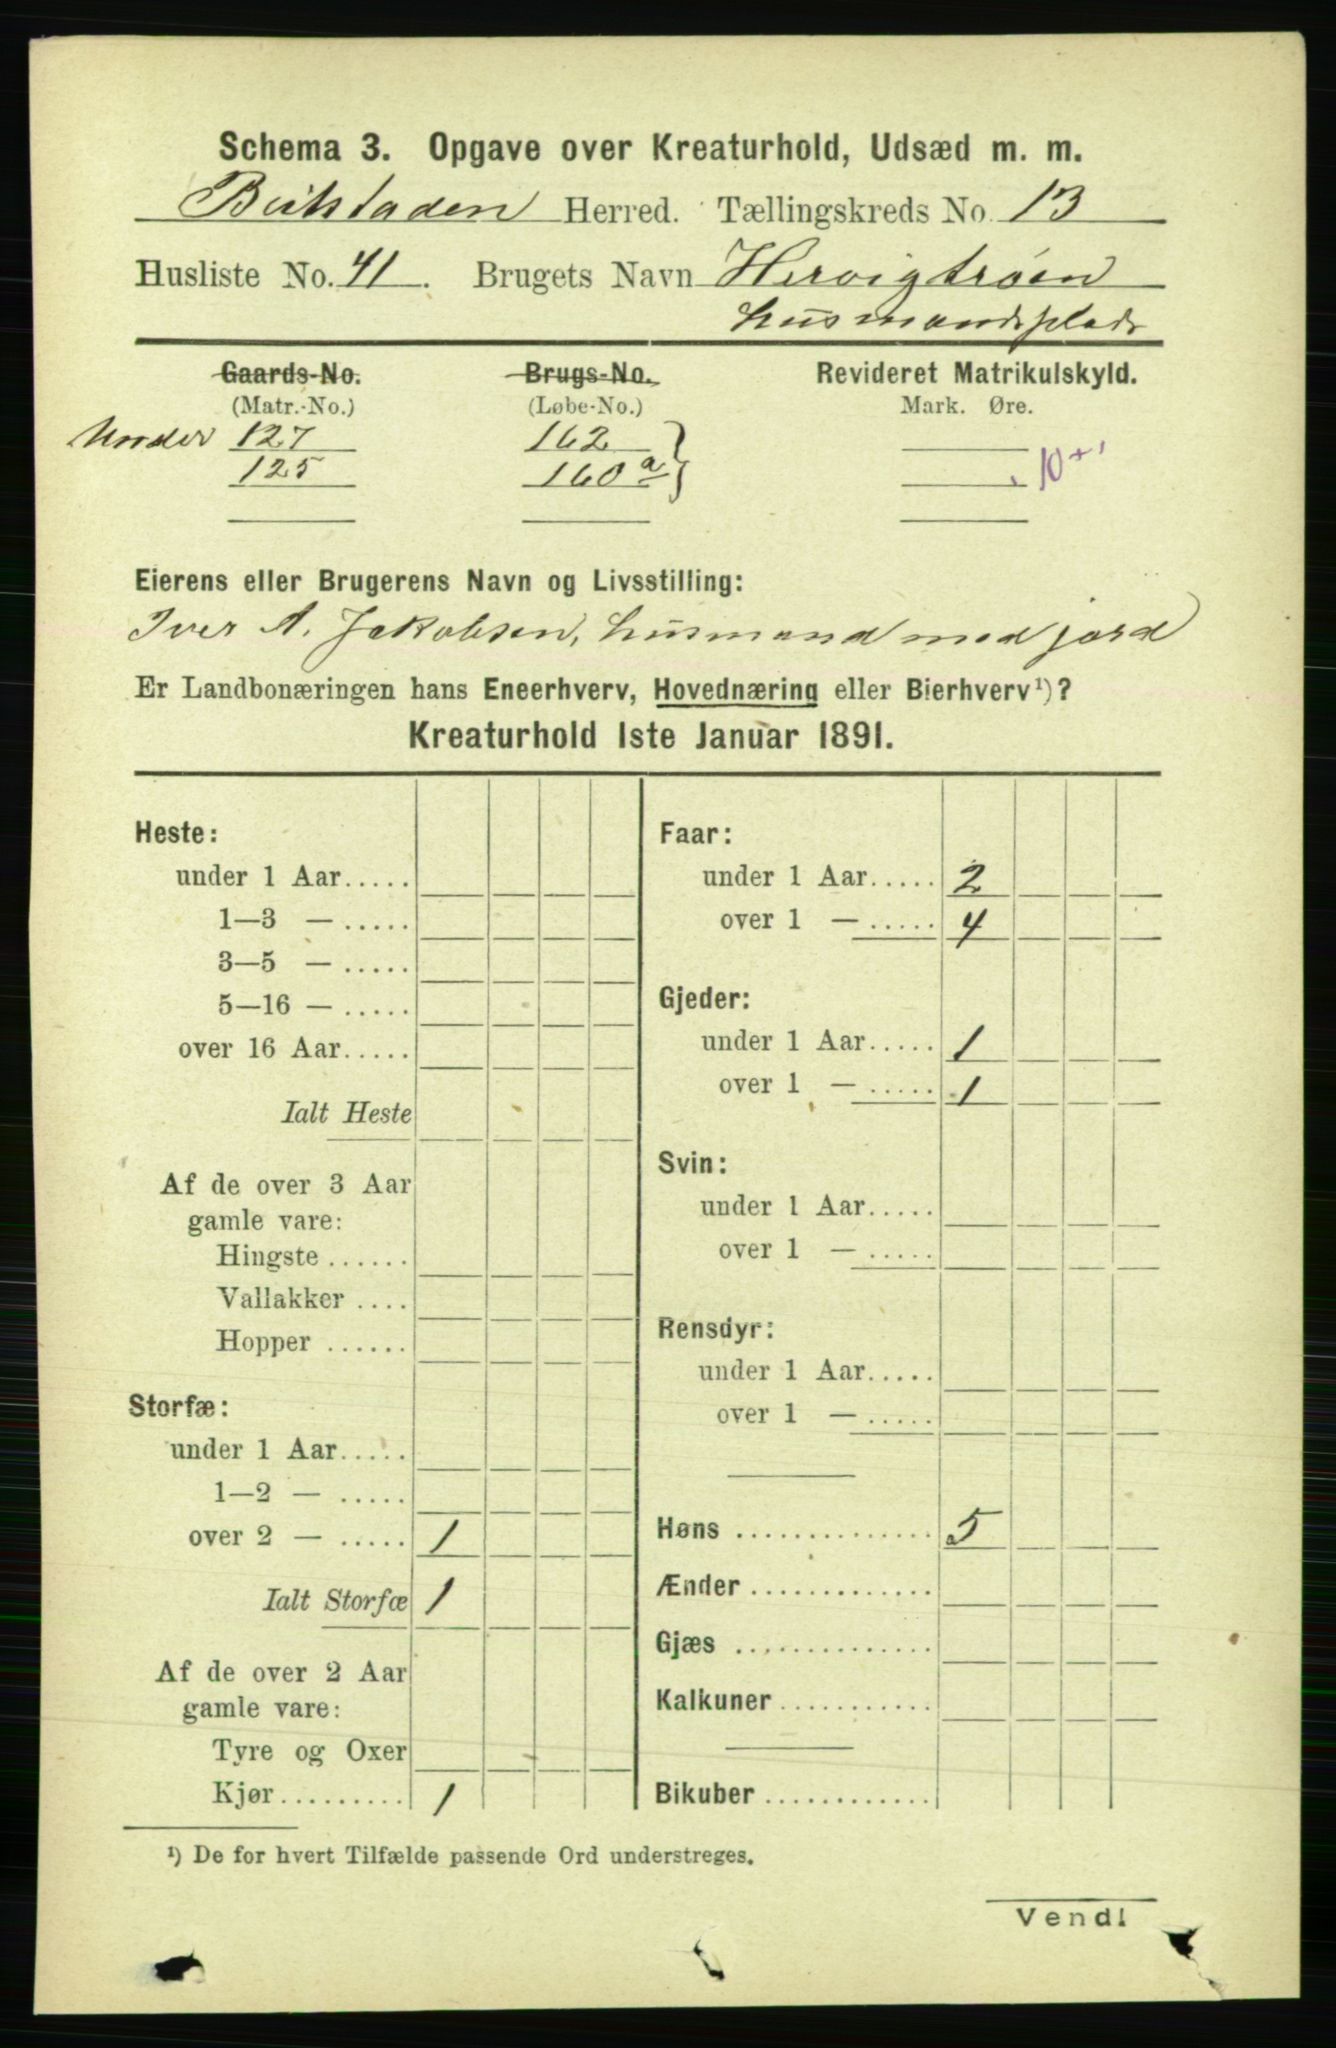 Schema 3. Opgave over Kreaturhold, Udsæd m. m.
Beitstaden Herred. Tællingskreds No. 13
Husliste No. 41. Brugets Navn Hervigtrøen
husmandsplads
Gaards-No. Brugs-No. Revideret Matrikulskyld.
(Matr.-No.) (Løbe-No.) Mark. Øre.
Under 127 162
125 160a 10+
Eierens eller Brugerens Navn og Livsstilling:
Iver A. Jakobsen, husmand med jord
Er Landbonæringen hans Eneerhverv, Hovednæring eller Bierhverv¹)?
Kreaturhold 1ste Januar 1891.
Heste:
under 1 Aar.....
1—3 — .....
3—5 — .....
5—16 — .....
over 16 Aar.....
Ialt Heste
Af de over 3 Aar
gamle vare:
Hingste ......
Vallakker ....
Hopper ......
Storfæ:
under 1 Aar.....
1—2 — .....
over 2 — ..... 1
Ialt Storfæ 1
Af de over 2 Aar
gamle vare:
Tyre og Oxer
Kjør......... 1
Faar:
under 1 Aar..... 2
over 1 — ..... 4
Gjeder:
under 1 Aar..... 1
over 1 — ..... 1
Svin:
under 1 Aar.....
over 1 — .....
Rensdyr:
under 1 Aar.....
over 1 — .....
Høns .............. 5
Ænder .............
Gjæs ..............
Kalkuner...........
Bikuber ............
¹) De for hvert Tilfælde passende Ord understreges.
Vend!